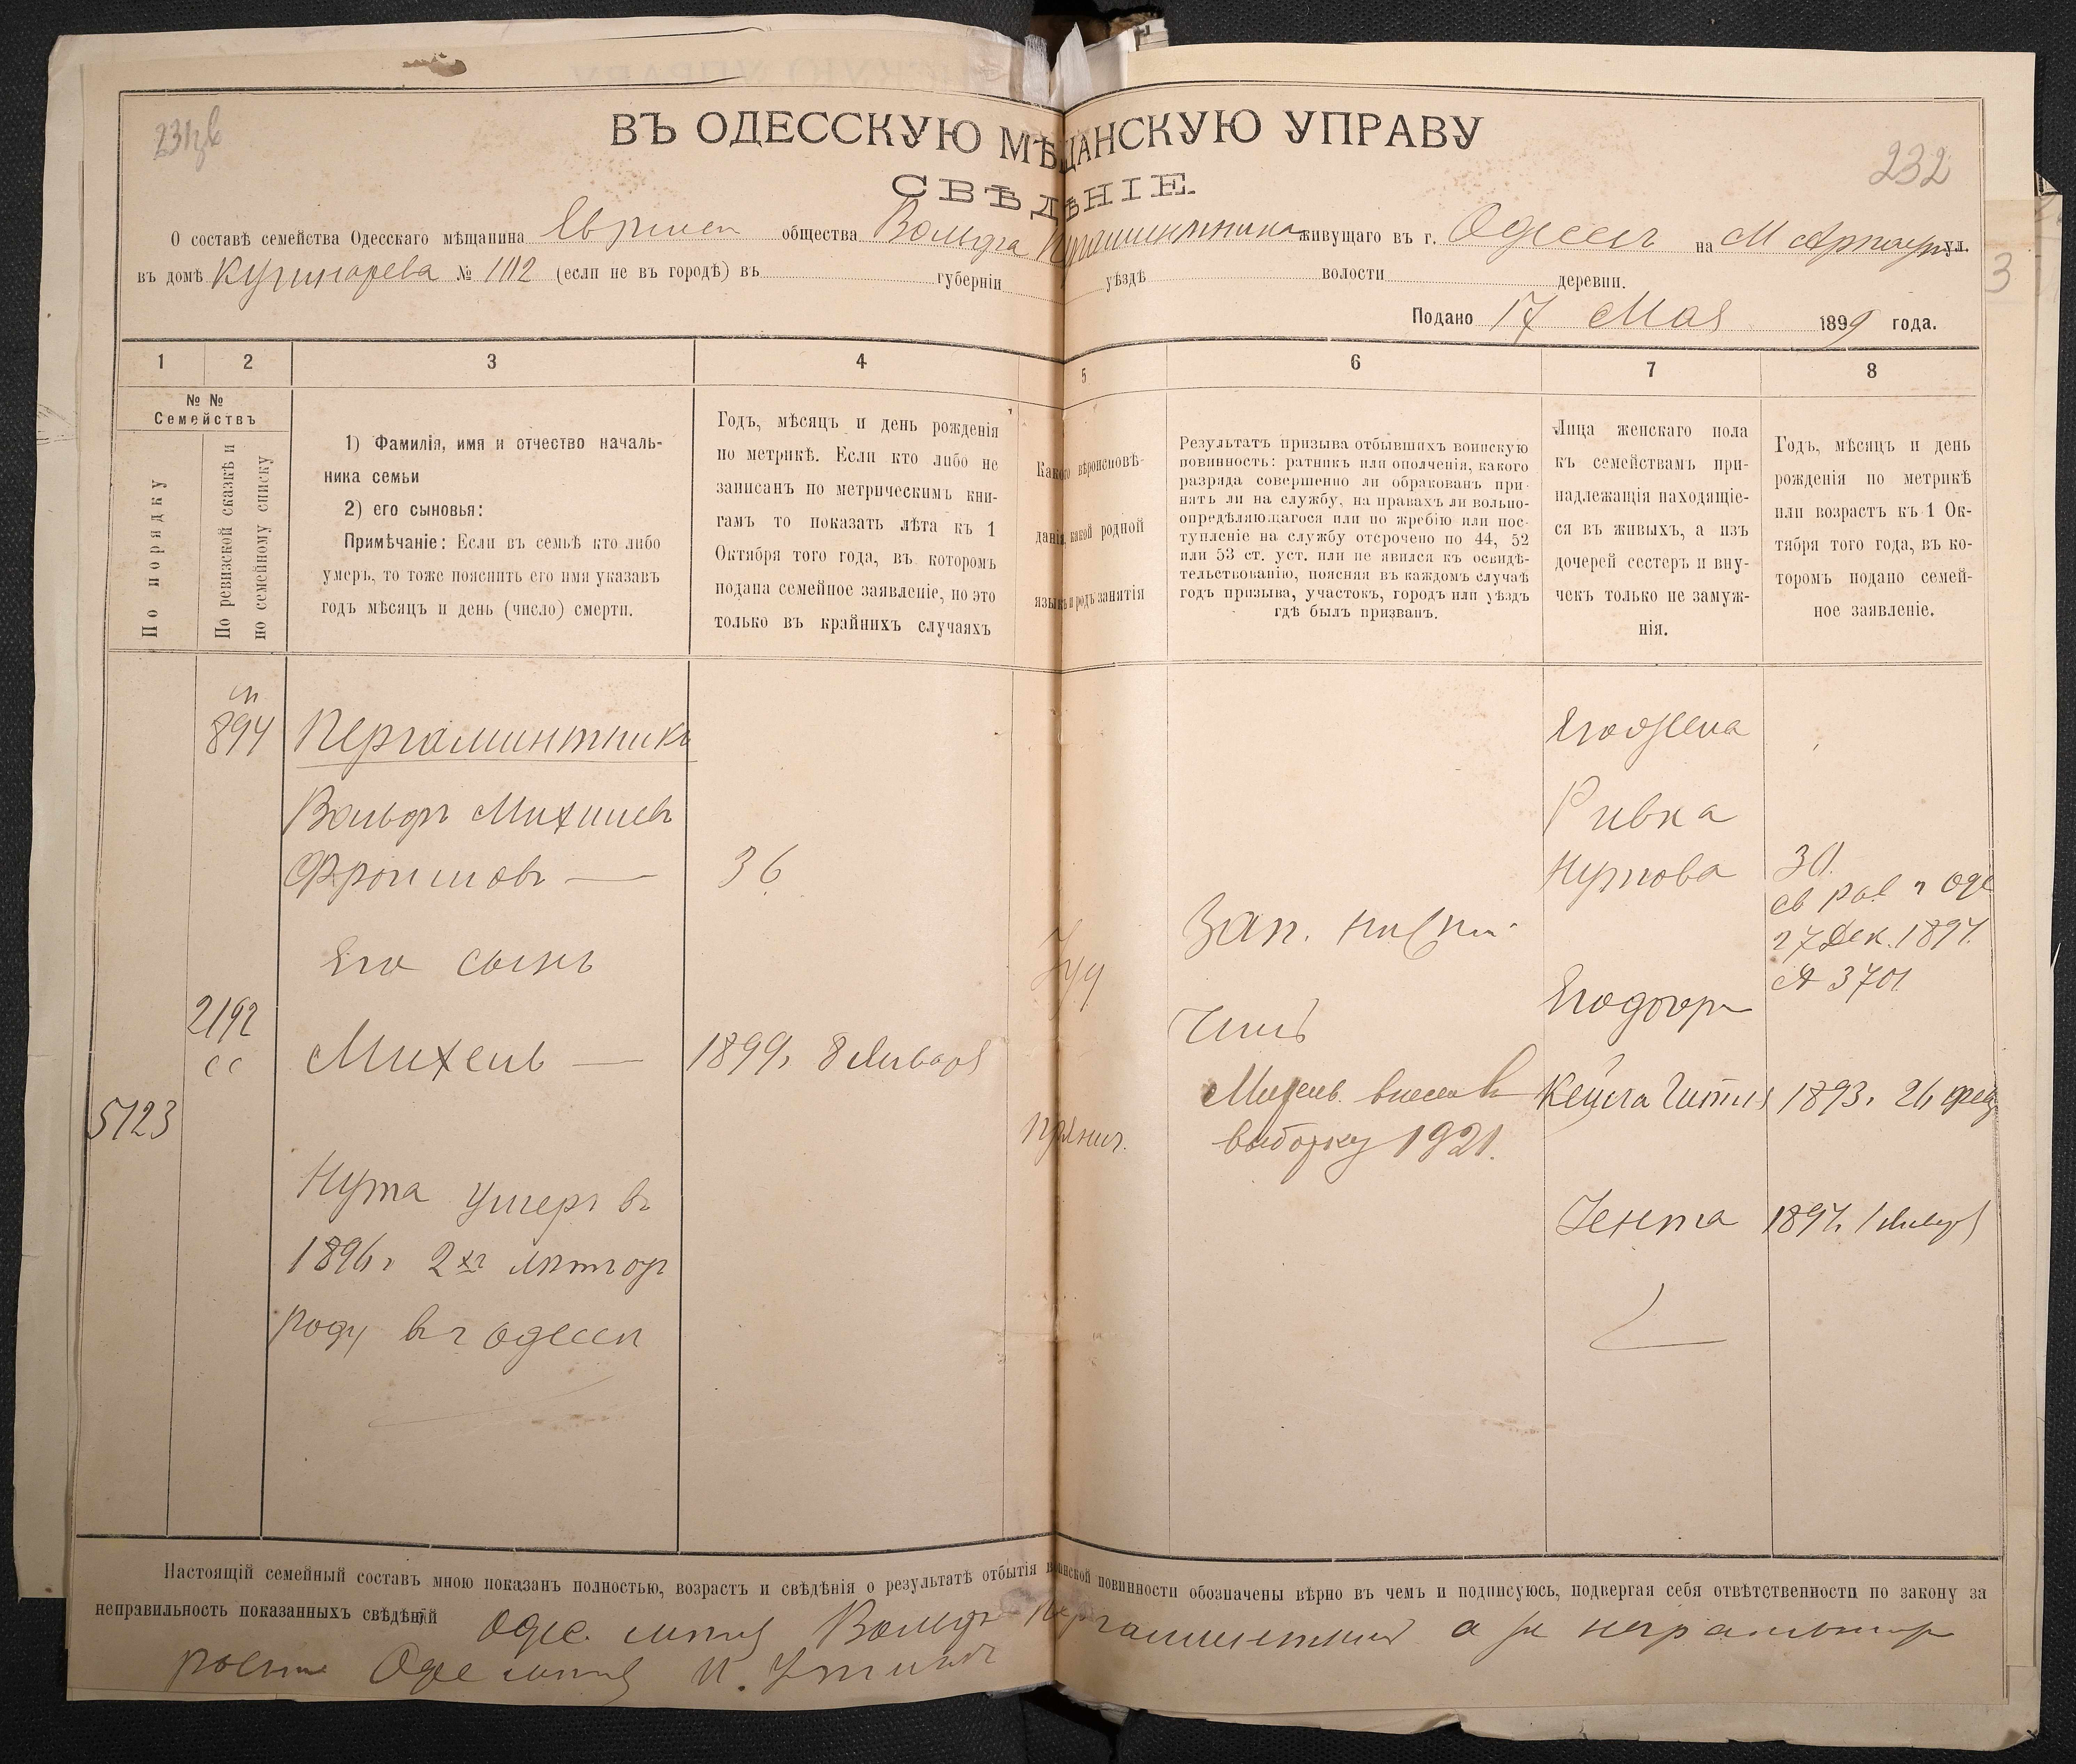 231об
232
ВЪ ОДЕССКУЮ МѢЩАНСКУЮ УПРАВУ
СВѢДѢНІЕ.
О составѣ семейства Одесскаго мѣщанина общества Вольфа живущаго въ г. Одессѣ на М Арнаут ул.
въ домѣ № 112 (если не въ городѣ) въ губерніи уѣздѣ волости деревни.
Подано 17 Мая 1899 года.
3
1 2 3 4 5 6 7 8
№ №
Семействъ
По порядку
По ревизской сказкѣ и
по семейному списку
1) Фамилія, имя и отчество началь-
ника семьи
2) его сыновья:
Примѣчаніе: Если въ семьѣ кто либо
умеръ, то тоже пояснить его имя указавъ
годъ мѣсяцъ и день (число) смерти.
Годъ, мѣсяцъ и день рожденія
по метрикѣ. Если кто либо не
записанъ по метрическимъ кни-
гамъ то показать лѣта къ 1
Октября того года, въ которомъ
подана семейное заявленіе, но это
только въ крайнихъ случаяхъ
Какого вѣроисповѣ-
данія, какой родной
языкъ и родъ занятія
Результатъ призыва отбывшихъ воинскую
повинность: ратникъ или ополченія, какого
разряда совершенно ли обракованъ при-
нятъ ли на службу, на правахъ ли вольно-
опредѣляющагося или по жребію или пос-
тупленіе на службу отсрочено по 44, 52
или 53 ст. уст. или не явился къ освидѣ-
тельствованію, поясняя въ каждомъ случаѣ
годъ призыва, участокъ, городъ или уѣздъ
гдѣ былъ призванъ.
Лица женскаго пола
къ семействамъ при-
надлежащія находящіе-
ся въ живыхъ, а изъ
дочерей сестеръ и вну-
чекъ только не замуж-
нія.
Годъ, мѣсяцъ и день
рожденія по метрикѣ
или возрастъ къ 1 Ок-
тября того года, въ ко-
торомъ подано семей-
ное заявленіе.
894
Пергаминтникъ
Его жена
Вольфъ
Ривка
Фроимовъ — 36
Нутова
30.
27 Дек. 1897.
№ 3701
Зап.
Его сынъ
Іуд
Его дочери
2192
сс
Михель — 1899г 8 Января
чинъ
5123
Михель внесенъ в
выборку 1921.
Кейла Гитля 1893г 26 февр
Нута умеръ въ
1896г 2хъ лѣт отъ
роду въ г Одессѣ
Іента 1897г 1 Январ
Настоящій семейный составъ мною показанъ полностью, возрастъ и свѣдѣнія о результатѣ отбытія воинской повинности обозначены вѣрно въ чемъ и подписуюсь, подвергая себя отвѣтственности по закону за
неправильность показанныхъ свѣдѣній Одес. Вольфъ
Оде